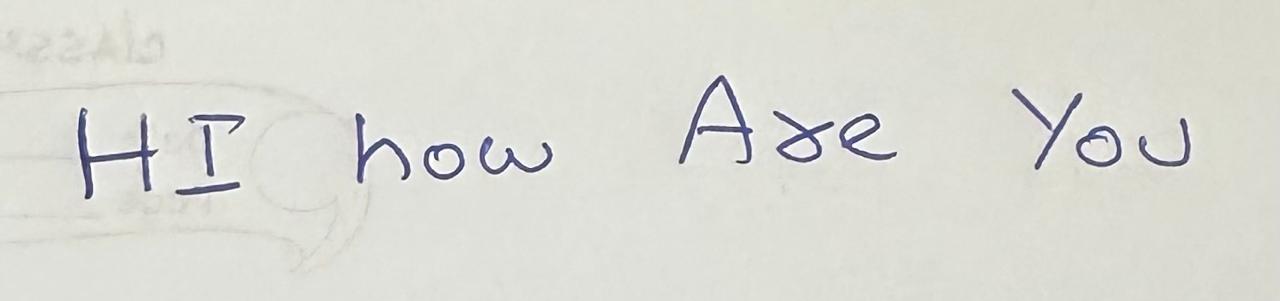 HI how Are You